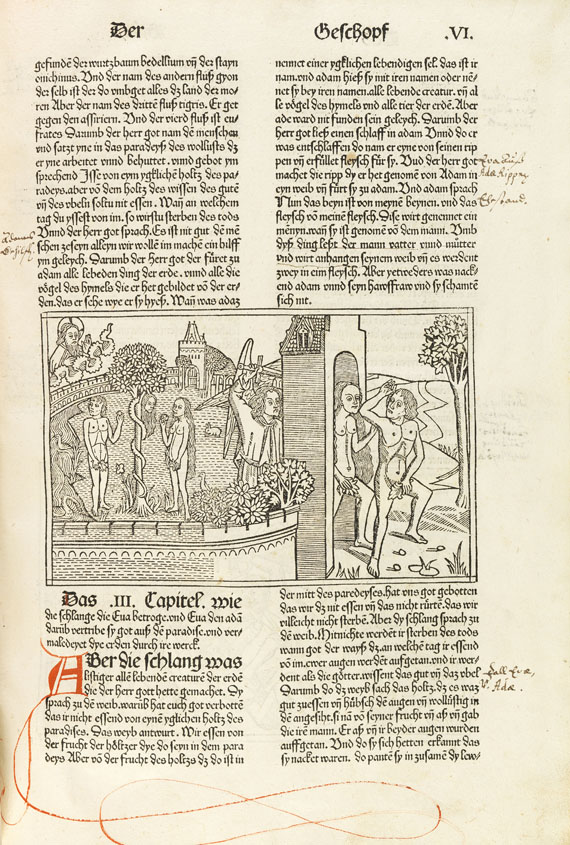 Der Geschopf .VI.
gefundē der wurtzbaum bedellium vn̄ der stayn
onichinus. Vnd der nam des andern fluß gyon
der selb ist der do vmbget alles dz land der mo-
ren Aber der nam des drittē fluß tigris. Er get
gegen den assiriern. Vnd der vierd fluß ist eu-
frates Darumb der herr got nam dē menschen
vnd satzt yne in das paradeyß des wollusts dz
er yne arbeitet vnnd behuttet. vnnd gebot ym
sprechend Isse von eyn ygklichē holtz des pa-
radeys. aber vō dem holtz des wissen des gutē
vn̄ des vbeln soltu nit essen. Wan̄ an welchem
tag du yssest von im. so wirstu sterben des tods
Vnnd der herr got sprach. Es ist nit gut dē mē
schen zeseyn alleyn wir wollē im machē ein hilff
ym geleych. Darumb der herr got der fūret zu
adam alle lebeden ding der erde. vnnd alle die
vögel des hymels die er het gebildet vō der er-
den. das er sche wye er sy hyeß. Wan̄ was adā
nennet einer ygklichen lebendigen sel. das ist ir
nam. vnd adam hieß sy mit iren namen oder nē-
net sy bey iren namen. alle lebende creatur. vn̄ al
le vögel des hymels vnd alle tier der erdē. Aber
ade ward nit funden sein geleych. Darumb der
herr got ließ einen schlaff in adam Vnnd do er
was entschlaffen do nam er eyne von seinen rip
pen vn̄ erfüllet fleysch für sy. Vnd der herr got
machet die ripp dy er het genomē von Adam in
eyn weib vn̄ fürt sy zu adam. Vnd adam sprach
Nun das beyn ist von meynē beynen. vnd das
fleysch vō meinē fleysch. Dise wirt genennet ein
mēnyn. wan̄ sy ist genomē vō dem mann. Vmb
dyß ding leßt der mann vatter vnnd mütter
vnd wirt anhangen seynem weib vn̄ es werdent
zwey in eim fleysch. Aber yetweders was nack-
end adam vnnd seyn hawsffraw vnd sy schamtē
sich nit.
Das .III. Capitel. wie
die schlange die Eua betroge. vnd Eua den adā
darüb vertribe sy got auß dē paradise. vnd ver-
maledeyet dye erden durch irc werck.
ABer die schlang was
listiger allē lebendē creaturē der erdē
die der herr gott hette gemachet. Sy
sprach zu dē weib. warūb hat euch got verbottē
das ir nicht essend von eynē yglichen holtz des
paradises. Das weyb antwurt. Wir essen von
der frucht der höltzer dye do seyn in dem para
deys Aber vō der frucht des holtzs dz do ist in
der mitt des paredeyses. hat vns got gebotten
das wir dz nit essen vn̄ das nicht rürtē. das wir
villeicht nicht sterbē. Aber dy schlang sprach zu
dē weib. Mitnichte werdēt ir sterben des tods
wann got der wayß dz. an welchē tag ir essend
vō im. ewer augen werdēt aufgetan. vnd ir wer-
dent als die götter. wissent das gut vn̄ daz vbel
Darumb do dz weyb sach das holtz. dz es waz
gut zuessen vn̄ hübsch dē augen vn̄ wollüstig in
dē angesiht. sy nā vō seyner frucht vn̄ aß vn̄ gab
die irē mann. Er aß vn̄ ir beyder augen wurden
auffgetan. Vnd do sy sich hetten erkannt das
sy nacket waren. do pantē sy in zusamē dy lew-